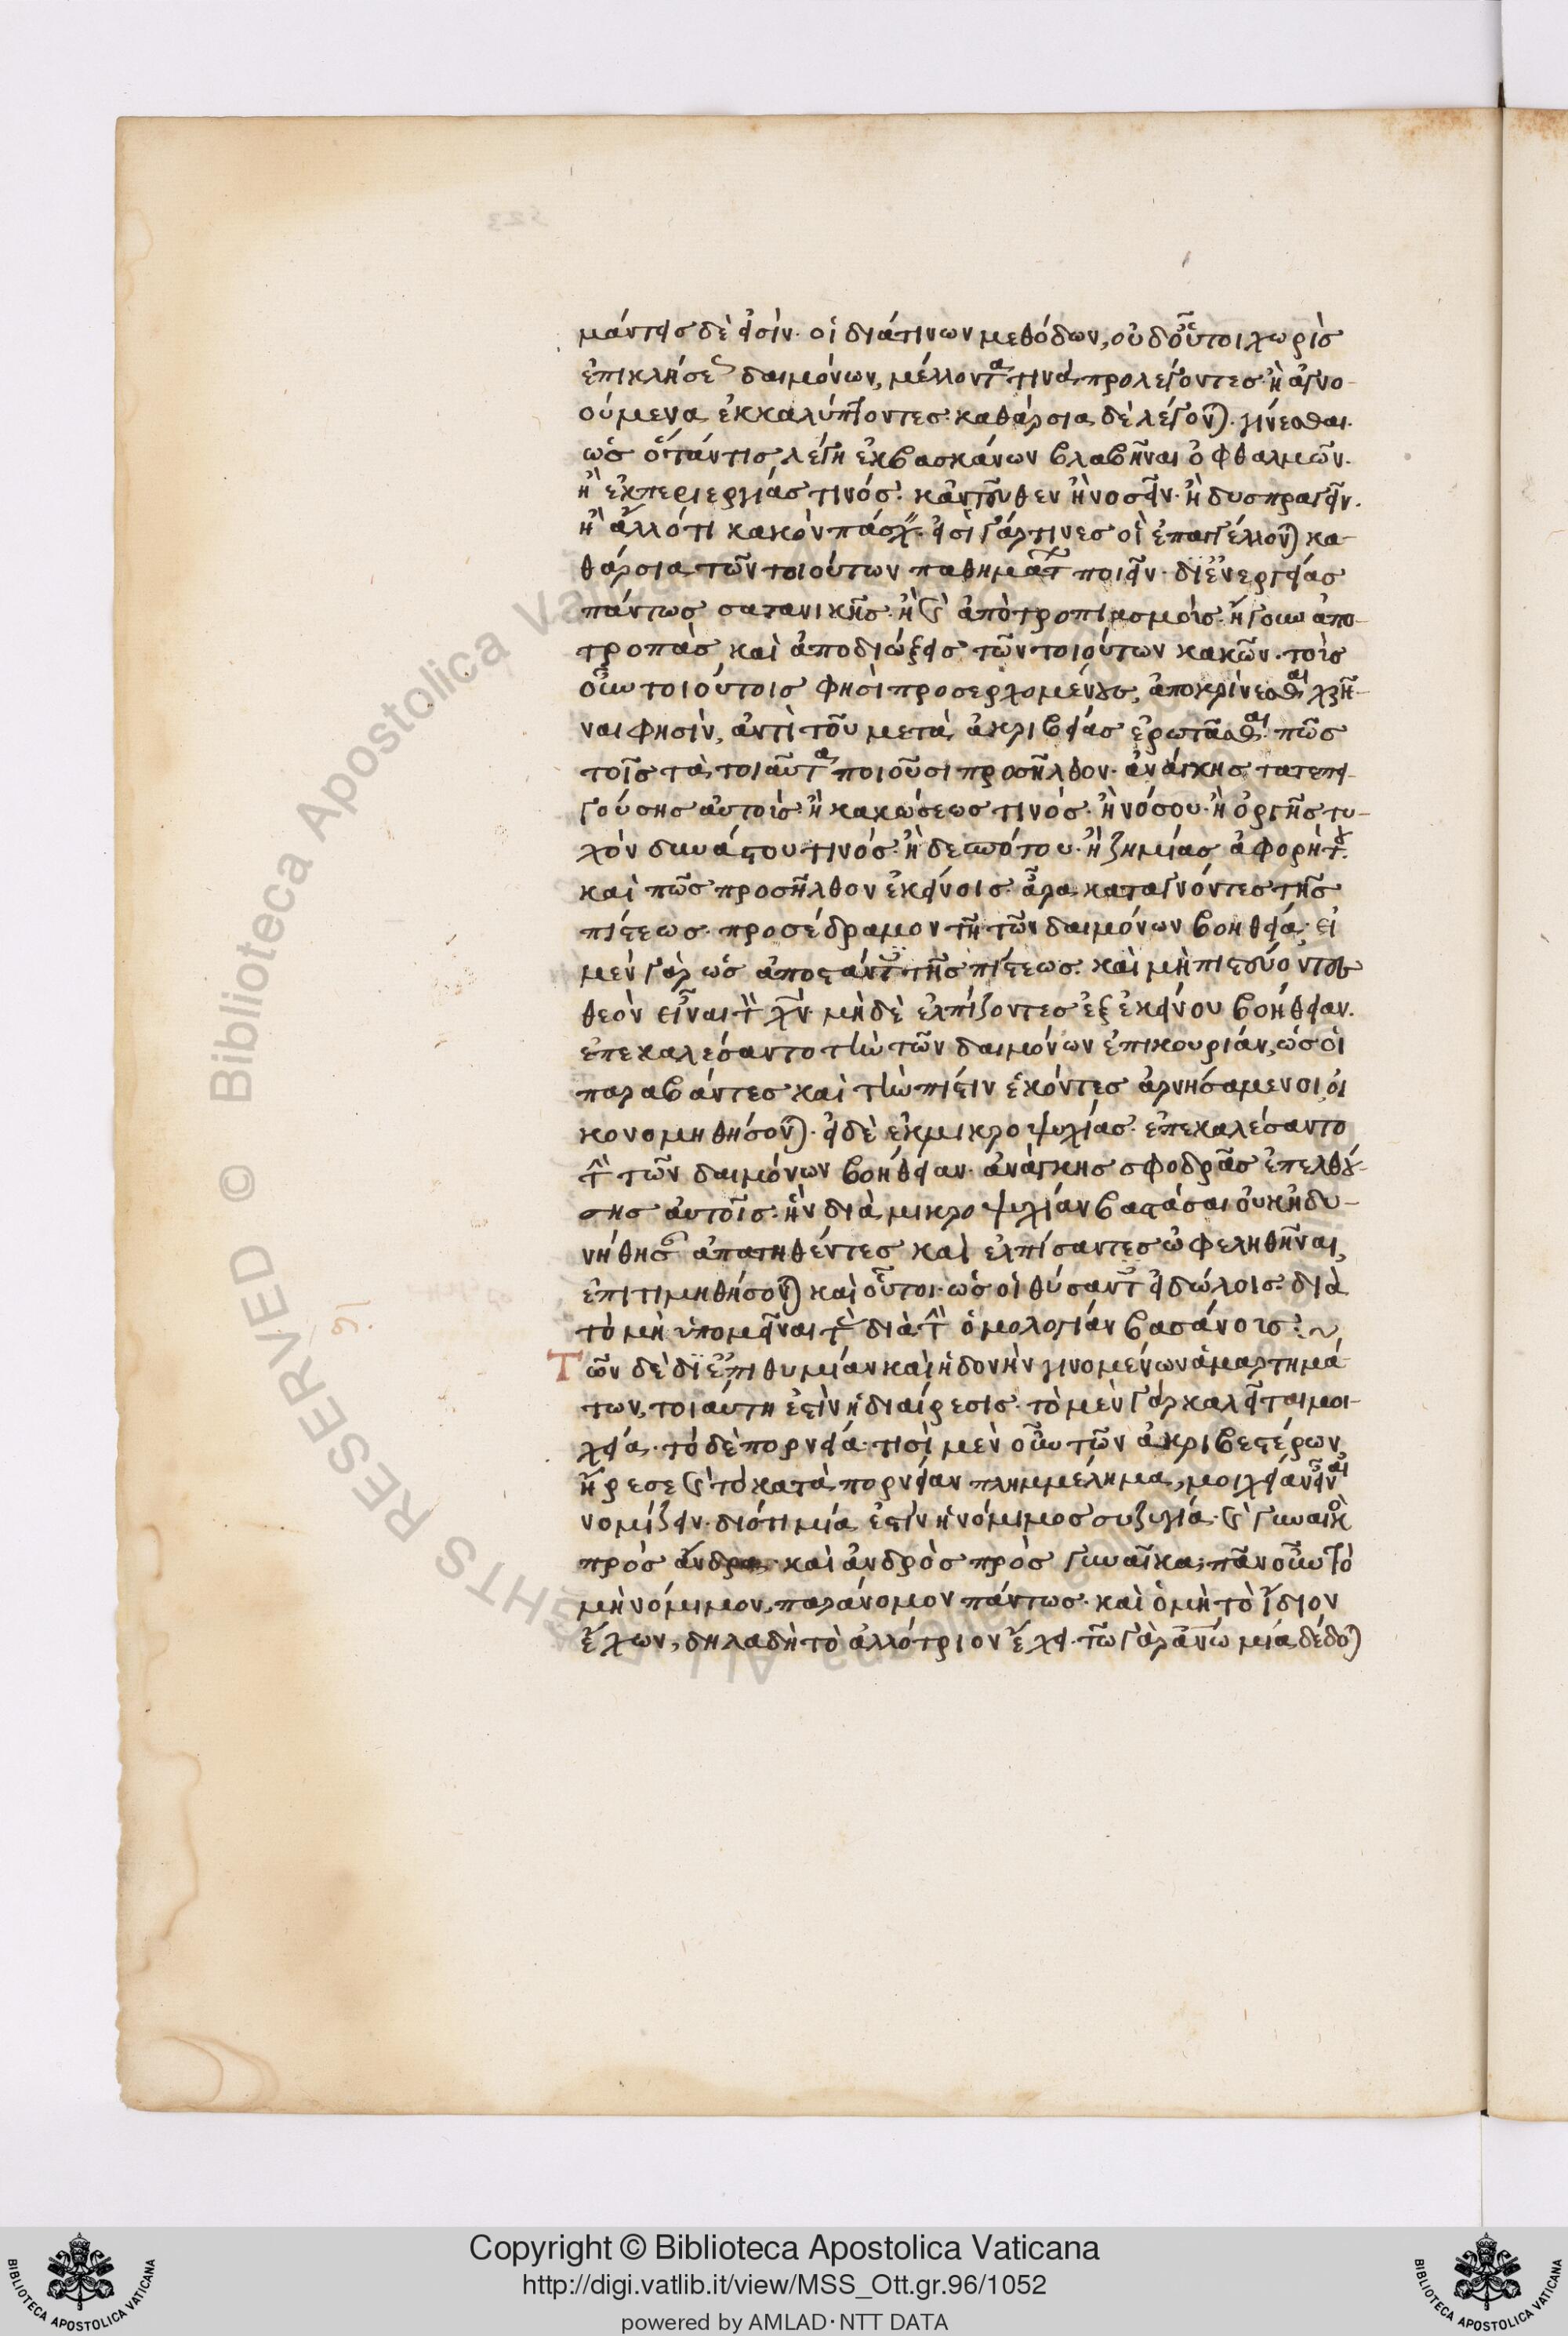 μάντεις δὲ εἰσίν· οἱ διά τινων μεθόδων, οὐδ' οὗτοι χωρὶς
ἐπικλήσεως δαιμόνων, μέλλοντά τινα προλέγοντες· ἢ ἀγνο-
ούμενα ἐκκαλύπτοντες· καθάρσια δὲ λέγονται γίνεσθαι·
ὡς ὅταν τις λέγῃ ἐκ βασκάνων βλαβῆναι ὀφθαλμῶν·
ἢ ἐκ περιεργίας τινός· κἀντεῦθεν ἢ νοσεῖν· ἢ δυσπραγεῖν·
ἢ ἄλλό τι κακὸν πάσχειν· εἰσὶ γάρ τινες οἳ ἐπαγγέλλονται κα-
θάρσια τῶν τοιούτων παθημάτων ποιεῖν· δι' ἐνεργείας
πάντως σατανικῆς· ἢ καὶ ἀποτροπιασμοὺς· ἤγουν ἀπο-
τροπὰς καὶ ἀποδιώξεις τῶν τοιούτων κακῶν· τοῖς
οὖν τοιούτοις φησὶ προσερχομένους, ἀποκρίνεσθαι χρῆ-
ναι φησὶν, ἀντὶ τοῦ μετὰ ἀκριβείας ἐρωτᾶσθαι πῶς
τοῖς τὰ τοιαῦτα ποιοῦσι προσῆλθον· ἀνάγκης κατεπει-
γούσης αὐτοῖς· ἢ κακώσεως τινὸς· ἢ νόσου· ἢ ὀργῆς τυ-
χὸν δυνάστου τινός· ἢ δεσπότου· ἢ ζημίας ἀφορήτου·
καὶ πῶς προσῆλθον ἐκείνοις· ἆρα καταγνόντες τῆς
πίστεως· προσέδραμον τῇ τῶν δαιμόνων βοηθείᾳ· εἰ
μὲν γὰρ ὡς ἀποστάντες τῆς πίστεως· καὶ μὴ πιστεύοντες
θεὸν εἶναι τὸν χν· μὴ δὲ ἐλπίζοντες ἐξ ἐκείνου βοήθειαν·
ἐπεκαλέσαντο τὴν τῶν δαιμόνων ἐπικουρίαν, ὡς οἱ
παραβάντες καὶ τὴν πίστιν ἑκόντες ἀρνησάμενοι οἰ
κονομηθήσονται· εἰ δὲ ἐκ μικροψυχίας ἐπεκαλέσαντο
τὴν τῶν δαιμόνων βοήθειαν· ἀνάγκης σφοδρᾶς ἐπελθού-
σης αὐτοῖς· ἣν διὰ μικροψυχίαν βαστάσαι οὐκ ἠδυ-
νήθησαν ἀπατηθέντες καὶ ἐλπίσαντες ὠφεληθῆναι,
ἐπιτιμηθήσονται καὶ οὗτοι· ὡς οἱ θύσαντες εἰδώλοις· διὰ
τὸ μὴ ὑπομεῖναι τὰς διὰ τὴν ὁμολογίαν βασάνους:~
Τῶν δὲ δι' ἐπιθυμίαν καὶ ἡδονὴν γινομένων ἁμαρτημά
των, τοιαύτη ἐστὶν ἡ διαίρεσις· τὸ μὲν γὰρ καλεῖται μοι-
χεία· τὸ δὲ πορνεία· τισὶ μὲν οὖν τῶν ἀκριβεστέρων
ἤρεσε καὶ τὸ κατὰ πορνείαν πλημμέλημα, μοιχείαν εἶναι
νομίζειν· διότι μία ἐστὶν ἡ νόμιμος συζυγία· καὶ γυναικὸς
πρὸς ἄνδρα· καὶ ἀνδρὸς πρὸς γυναῖκα, πᾶν οὖν τὸ
μὴ νόμιμον, παράνομον πάντως· καὶ ὁ μὴ τὸ ἴδιον
ἔχων, δηλαδὴ τὸ ἀλλότριον ἔχει· τῷ γὰρ ανω μία δέδοται
Copyright © Biblioteca Apostolica Vaticana
http://digi.vatlib.it/view/MSS_Ott.gr.96/1052
powered by AMLAD·NTT DATA